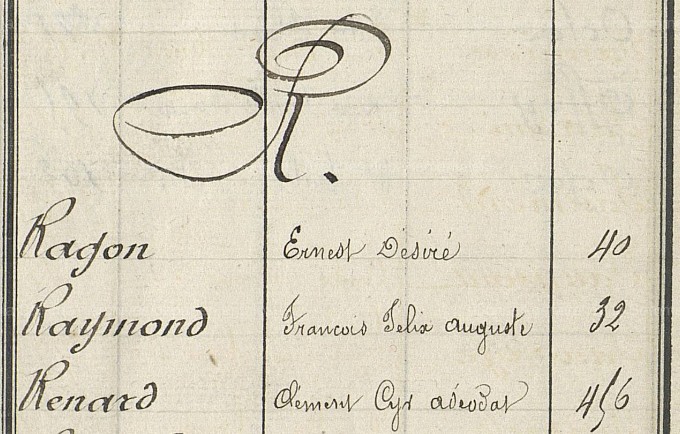 R.
Ragon Ernest Désiré 40
Raymond Francois Felix auguste 32
Renard Clément Cyr adéodat 456